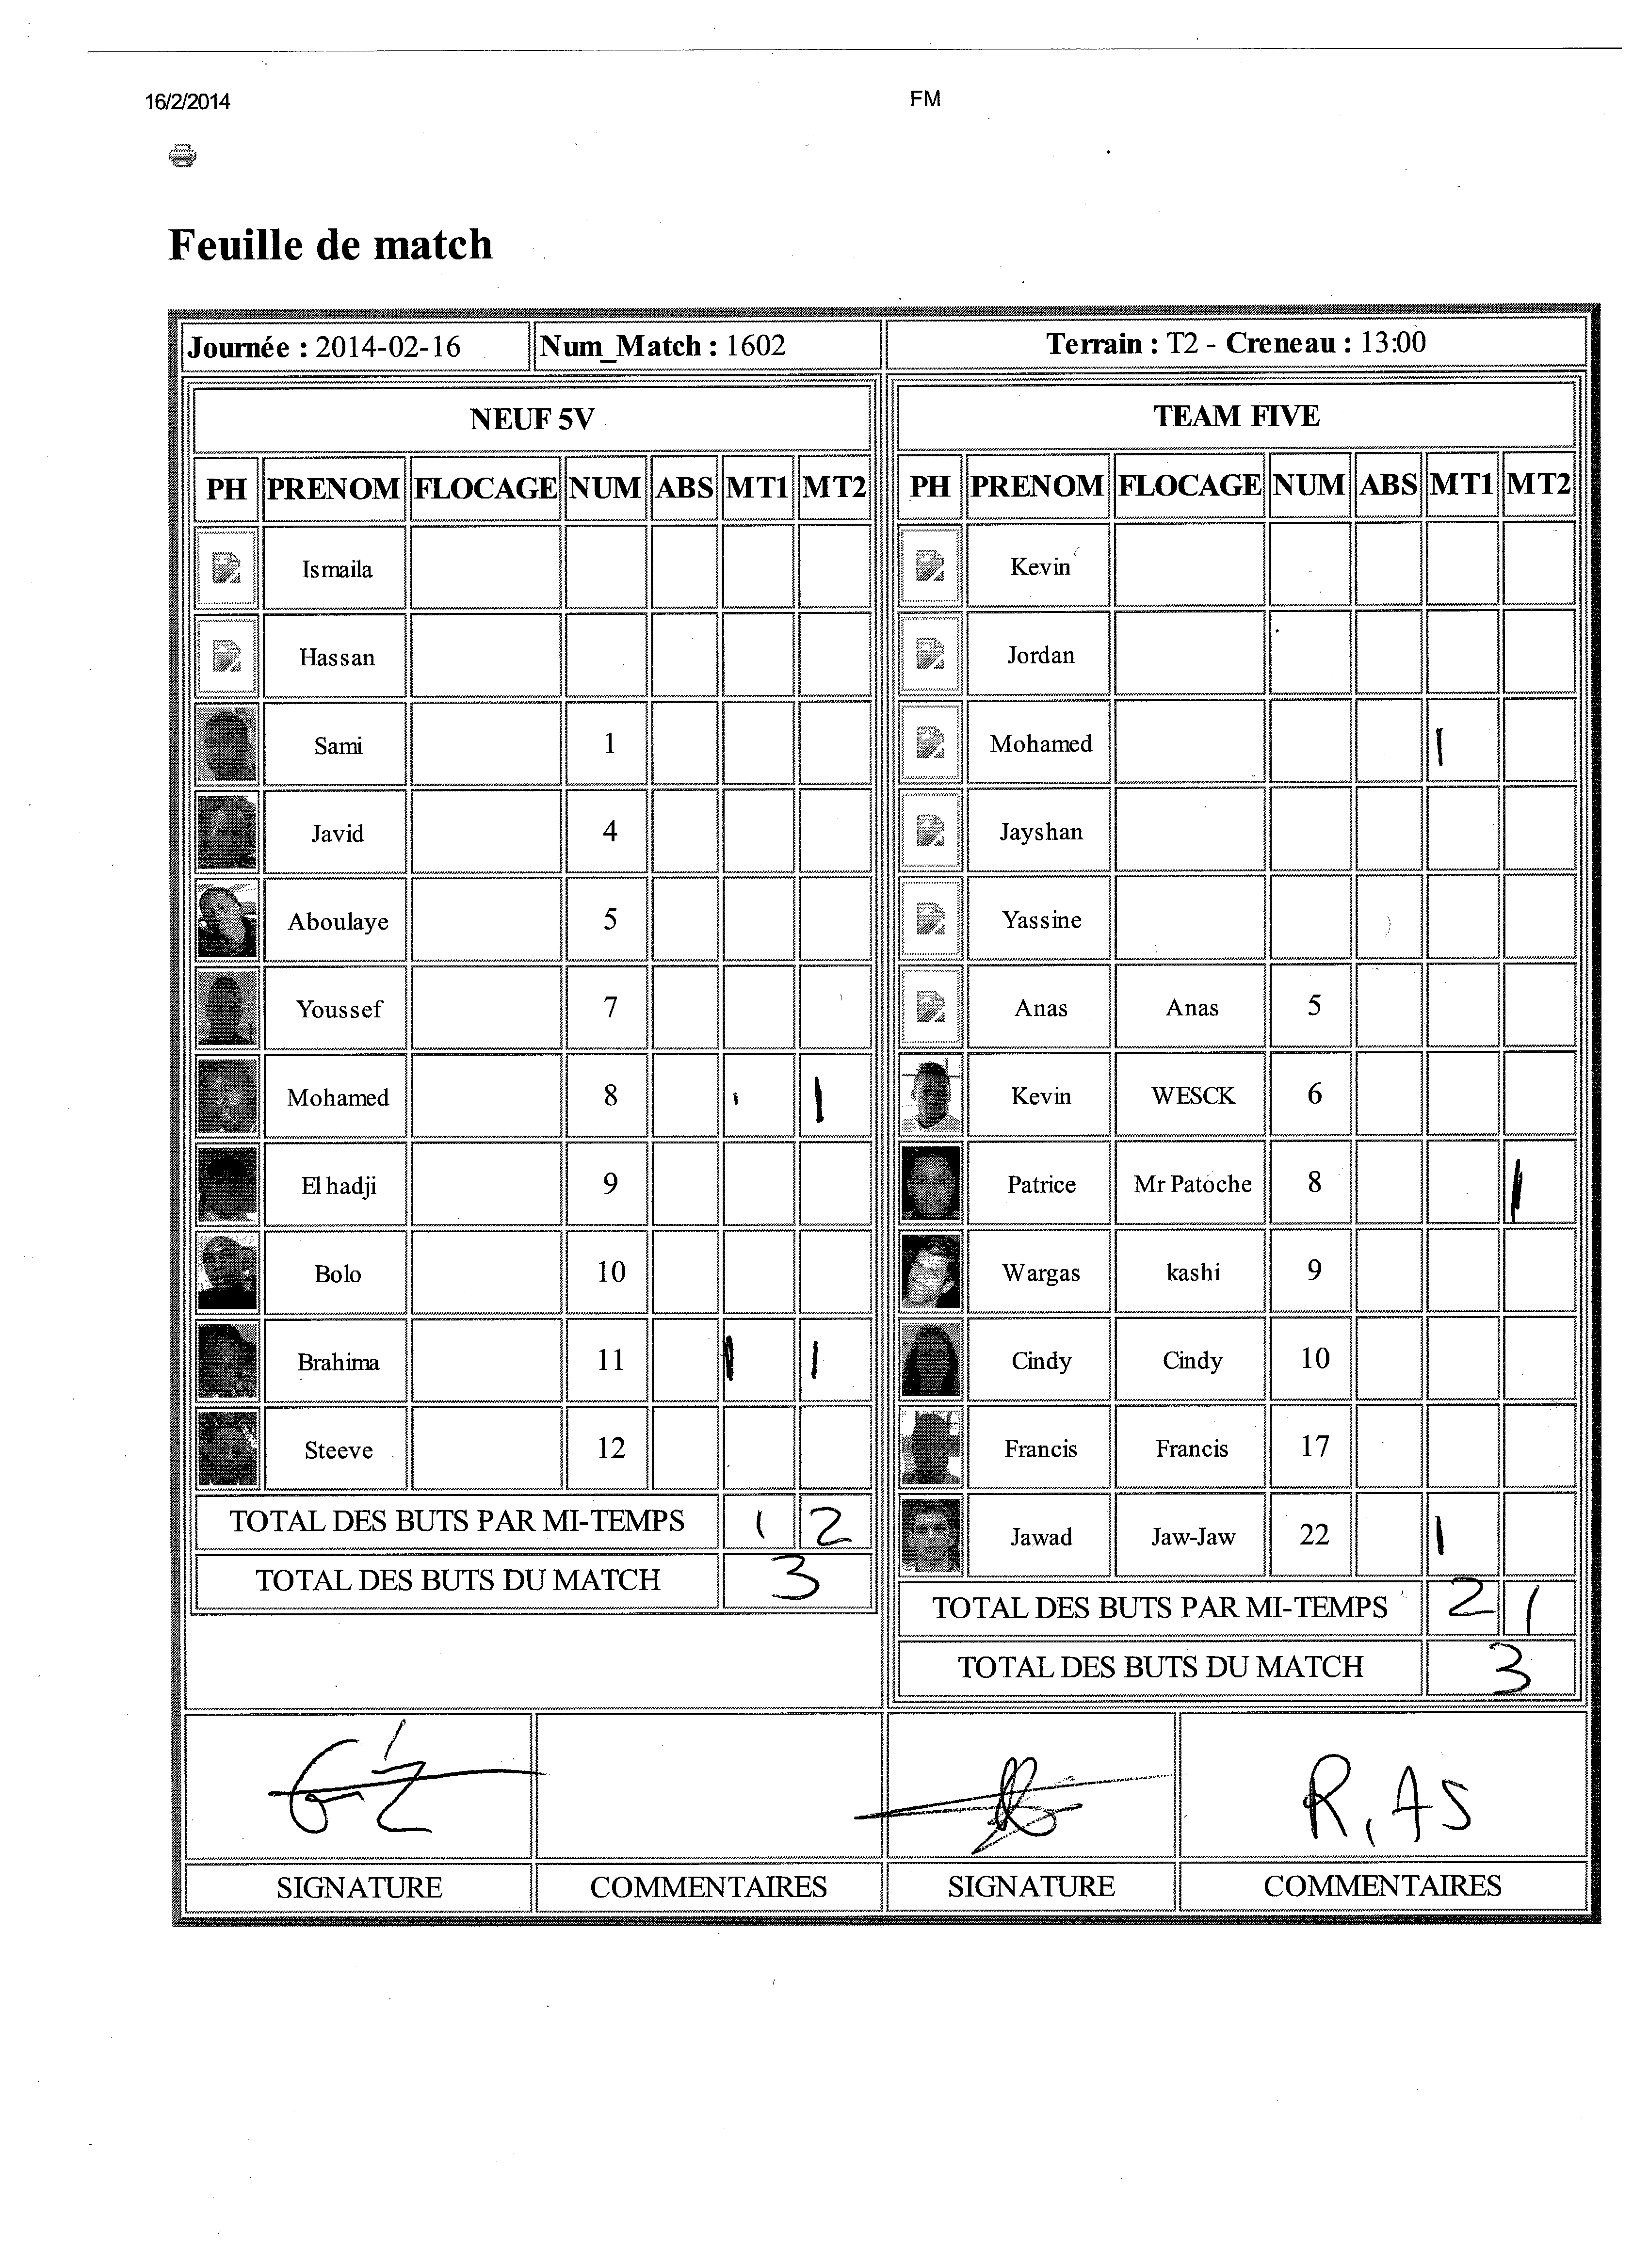 16/2/2014 FM
Feuille de match
Journée : 2014-02-16 Num_Match : 1602 Terrain : T2 - Creneau : 13:00
NEUF 5V
PH PRENOM FLOCAGE NUM ABS MT1 MT2
Ismaila
Hassan
Sami 1
Javid 4
Aboulaye 5
Youssef 7
Mohamed 8 ı 1
El hadji 9
Bolo 10
Brahima 11 1 1
Steeve 12
TOTAL DES BUTS PAR MI-TEMPS 1 2
TOTAL DES BUTS DU MATCH 3
TEAM FIVE
PH PRENOM FLOCAGE NUM ABS MT1 MT2
Kevin
Jordan
Mohamed 1
Jayshan
Yassine
Anas Anas 5
Kevin WESCK 6
Patrice Mr Patoche 8 1
Wargas kashi 9
Cindy Cindy 10
Francis Francis 17
Jawad Jaw-Jaw 22 1
TOTAL DES BUTS PAR MI-TEMPS 2 1
TOTAL DES BUTS DU MATCH 3
R,AS
SIGNATURE COMMENTAIRES SIGNATURE COMMENTAIRES